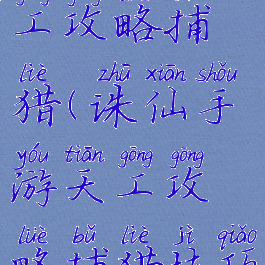 工攻略捕
liè zhū xiān shǒu
猎(诛仙手
yóu tiān gōng gōng
游天工攻
lüè bǔ liè jì qiǎo
略捕猎技巧